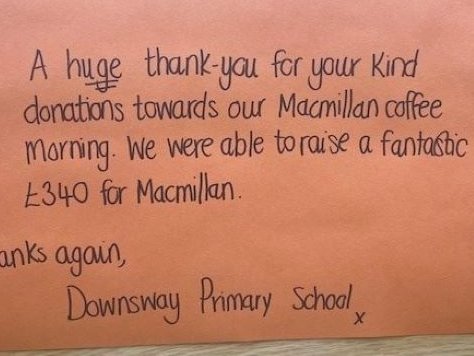 A huge thank-you for your kind
donations towards our Macmillan coffee
morning. We were able to raise a fantastic
£340 for Macmillan.
anks again,
Downsway Primary School x